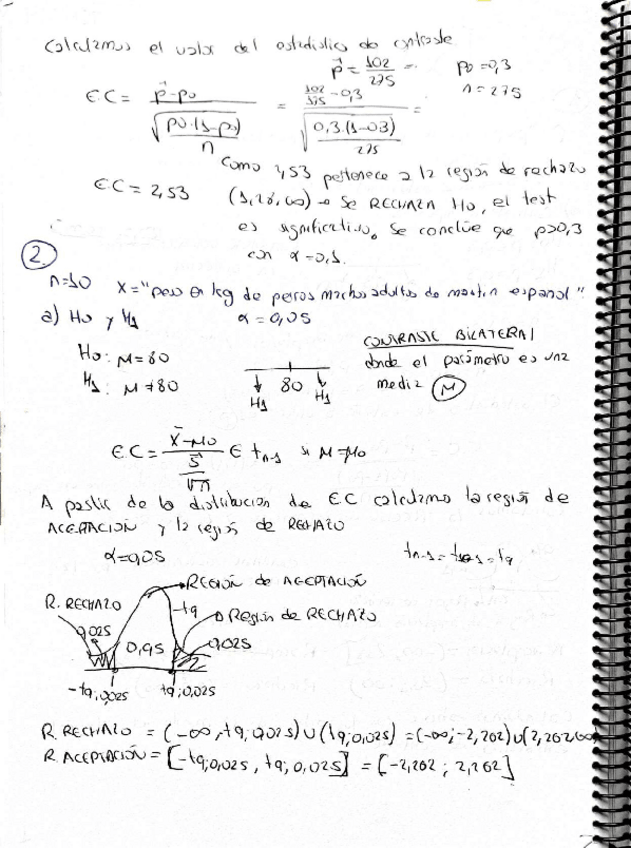 Calculamos el valor del estadístico de contraste.
p̂ = 102/275 =
p0 = 0,3
n = 275
E.C = (p̂ - p0) / √(p0·(1-p0)/n) = (102/275 - 0,3) / √(0,3·(1-0,3)/275) =
E.C = 2,53
Como 2,53 pertenece a la región de rechazo
(1,28, ∞) → Se RECHAZA H0, el test
es significativo. Se conclúe que p>0,3
con α = 0,1.
2.
n=10 X = "peso en kg de perros machos adultos de mastín español".
a) H0 y H1 α = 0,05
H0: M = 80
H1: M ≠ 80
80
H1 H1
CONTRASTE BILATERAL
donde el parámetro es una
media (M)
E.C = (x̄ - M0) / (ŝ/√n) ∈ tn-1 si M = M0
A partir de la distribución de E.C calculamos la región de
ACEPTACIÓN y la región de RECHAZO
α = 0,05
tn-1 = t10-1 = t9
REGIÓN DE ACEPTACIÓN
R. RECHAZO
t9
Región de RECHAZO
0,025
0,95
0,025
-t9;0,025 t9;0,025
R. RECHAZO = (-∞, -t9;0,025) ∪ (t9;0,025) = (-∞; -2,262) ∪ (2,262, ∞)
R. ACEPTACIÓN = [-t9;0,025, t9;0,025] = [-2,262 ; 2,262]